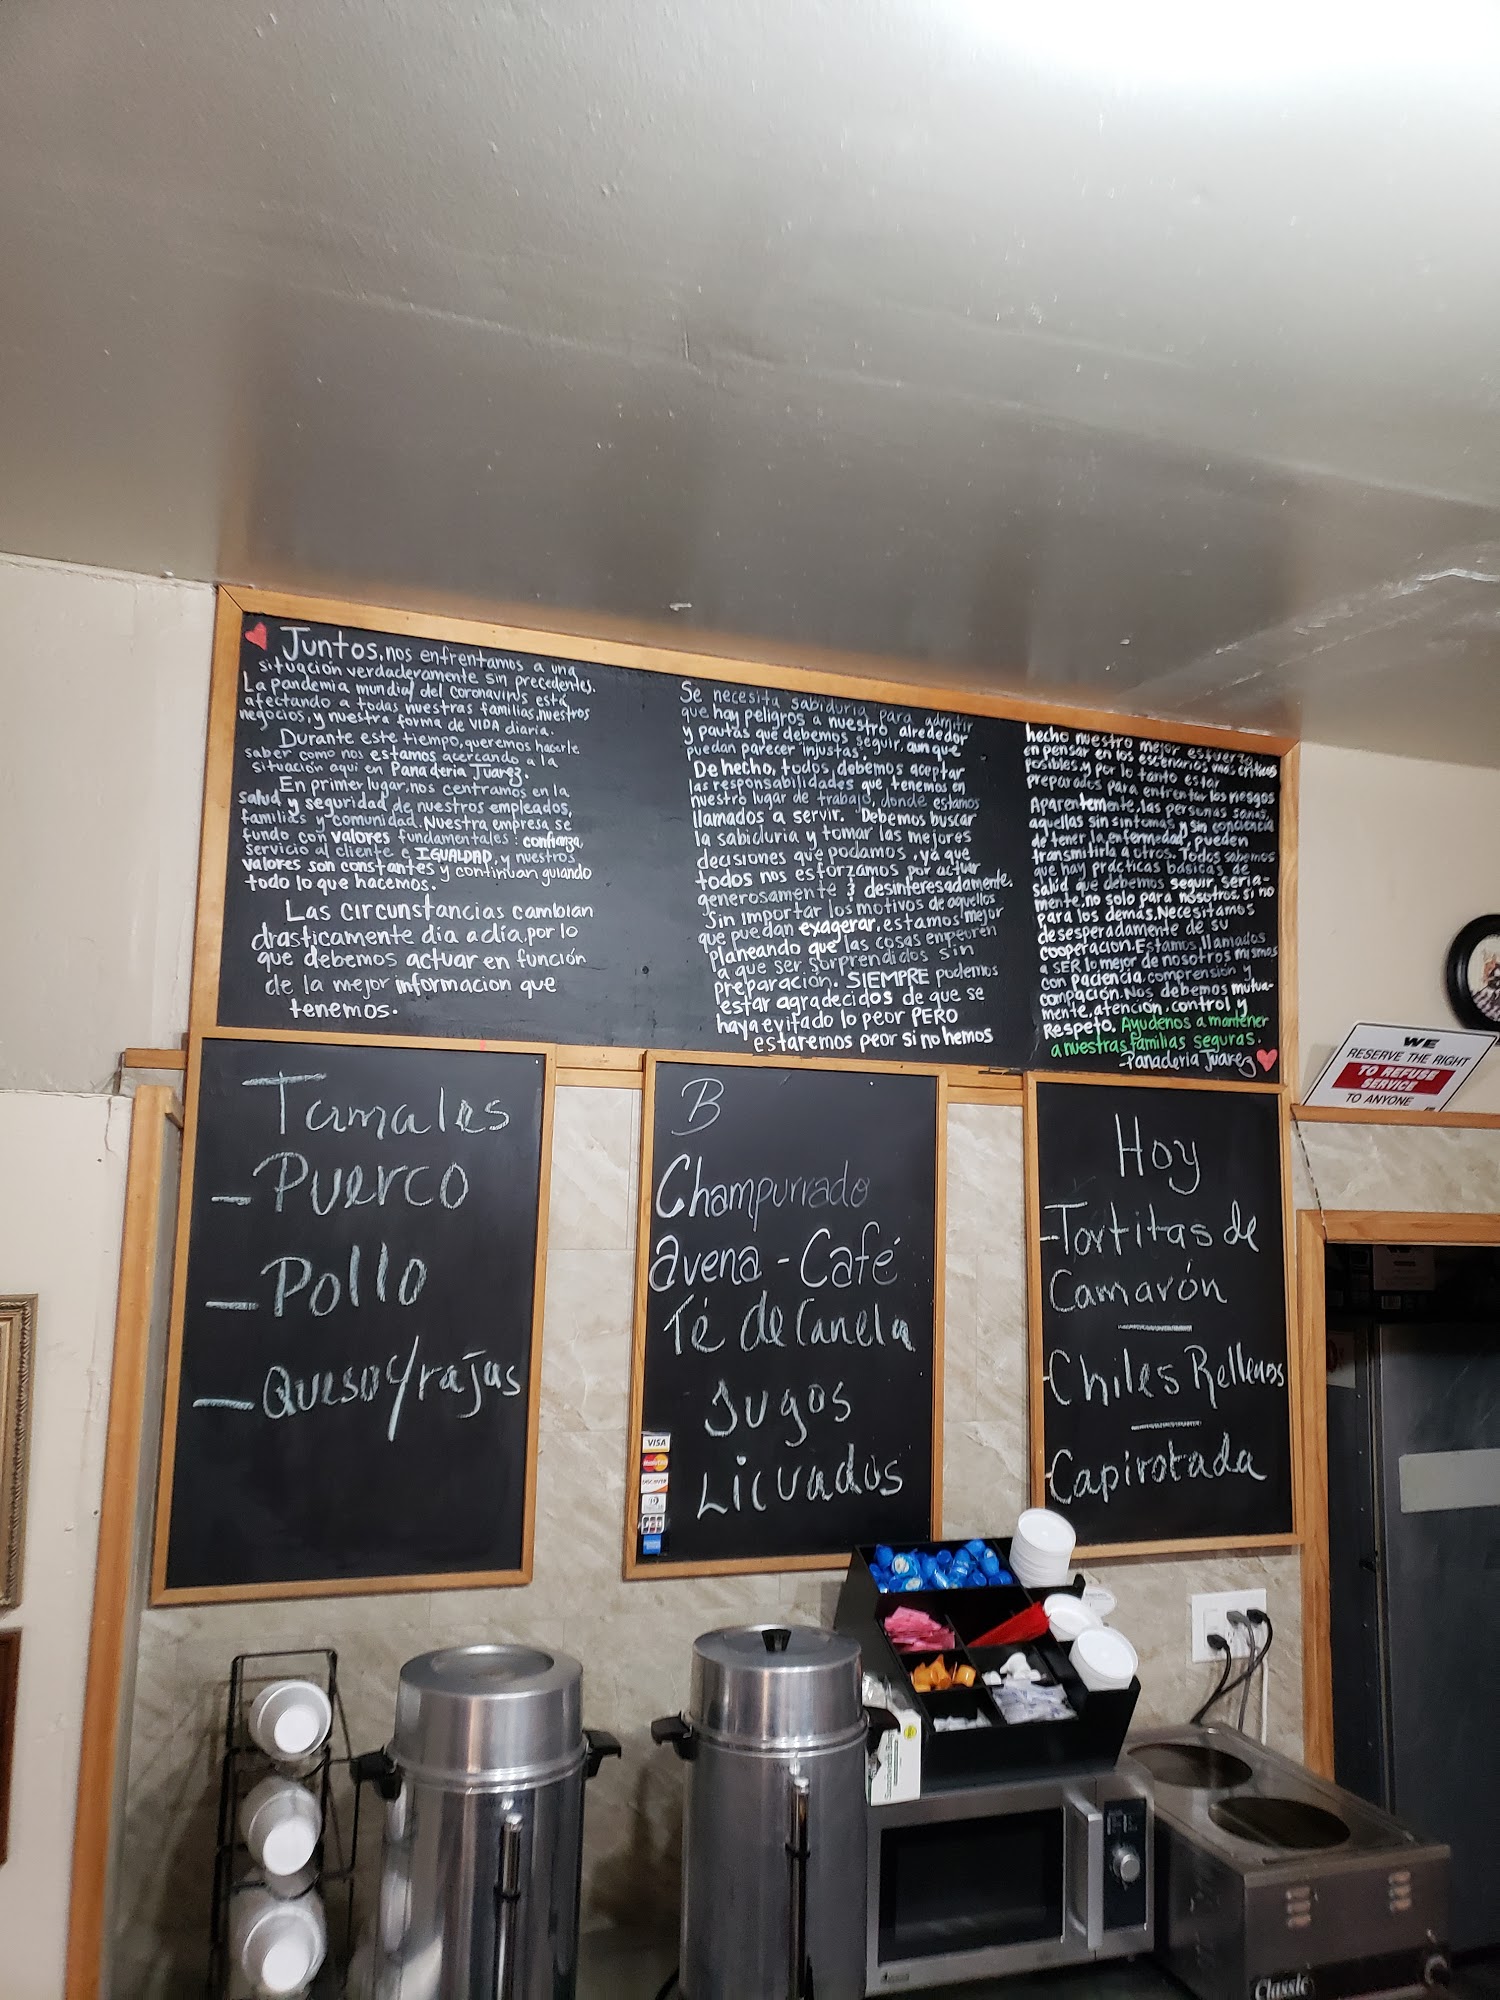 Juntos, nos enfrentamos a una
situación verdaderamente sin precedentes.
La pandemia mundial del coronavirus está
afectando a todas nuestras familias, nuestros
negocios, y nuestra forma de VIDA diaria.
Durante este tiempo, queremos hacerle
saber como nos estamos acercando a la
situación aquí en Panaderia Juarez.
En primer lugar, nos centramos en la
salud y seguridad de nuestros empleados,
familias y comunidad. Nuestra empresa se
fundo con valores fundamentales: confianza,
servicio al cliente e IGUALDAD, y nuestros
valores son constantes y continuan guiando
todo lo que hacemos.
Las circunstancias cambian
drasticamente dia a dia, por lo
que debemos actuar en función
de la mejor informacion que
tenemos.
Se necesita sabiduria para admitir
que hay peligros a nuestro alrededor
y pautas que debemos seguir, aunque
puedan parecer injustas.
De hecho, todos debemos aceptar
las responsabilidades que tenemos en
nuestro lugar de trabajo, donde estamos
llamados a servir. Debemos buscar
la sabiduria y tomar las mejores
decisiones que podamos, ya que
todos nos esforzamos por actuar
generosamente y desinteresadamente.
Sin importar los motivos de aquellos
que puedan exagerar, estamos mejor
planeando que las cosas empeoren
a que ser sorprendidos sin
preparación. SIEMPRE podemos
estar agradecidos de que se
haya evitado lo peor PERO
estaremos peor si no hemos
hecho nuestro mejor esfuerzo
en pensar en los escenarios mas criticos
posibles y por lo tanto estar
preparados para enfrentar los riesgos
Aparentemente, las personas sanas,
aquellas sin sintomas y sin conciencia
de tener la enfermedad, pueden
transmitirla a otros. Todos sabemos
que hay prácticas básicas de
salud que debemos seguir, seria-
mente, no solo para nosotros, si no
para los demás. Necesitamos
desesperadamente de su
cooperacion. Estamos llamados
a SER lo mejor de nosotros mismos
con paciencia, comprensión y
compación. Nos debemos mutua-
mente, atención, control y
Respeto. Ayudenos a mantener
a nuestras familias seguras.
-Panaderia Juarez
WE
RESERVE THE RIGHT
TO REFUSE
SERVICE
TO ANYONE
Tamales
- Puerco
- Pollo
- Queso c/rajas
B
Champurrado
avena - Café
Té de Canela
Jugos
Licuados
VISA
MasterCard
DISCOVER
JCB
Hoy
- Tortitas de
Camarón
- Chiles Rellenos
- Capirotada
Classic